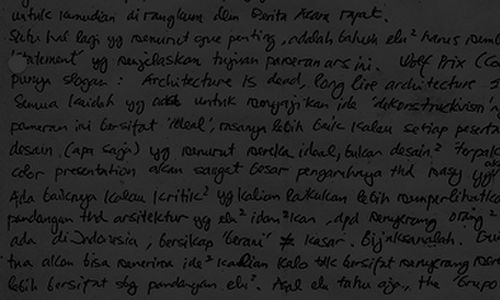 untuk kemudian dirangkum dlm Berita Acara rapat.
Satu hal lagi yg menurut gue penting, adalah bahwa elu² harus
'statement' yg menjelaskan tujuan pameran ars ini. Wolf Prix (Co
punya slogan : Architecture is dead, long live architecture
Semua kaidah yg untuk menyajikan ide 'dekonstruktivism'
pameran ini bersifat 'ideal', rasanya lebih baik kalau setiap peserta
desain (apa saja) yg menurut mereka ideal, bukan desain²
color presentation akan sangat besar pengaruhnya thd
Ada baiknya kalau kritik² yg kalian lakukan lebih memperlihatka
pandangan thd arsitektur yg elu² idam²kan, dpd menyerang orang²
ada di Indonesia, bersikap 'berani' ≠ kasar. Bijaksanalah.
tua akan bisa menerima ide² kalian kalo tdk bersifat menyerang
lebih bersifat sbg pandangan elu². Asal elu tahu aja, the 'Grupo